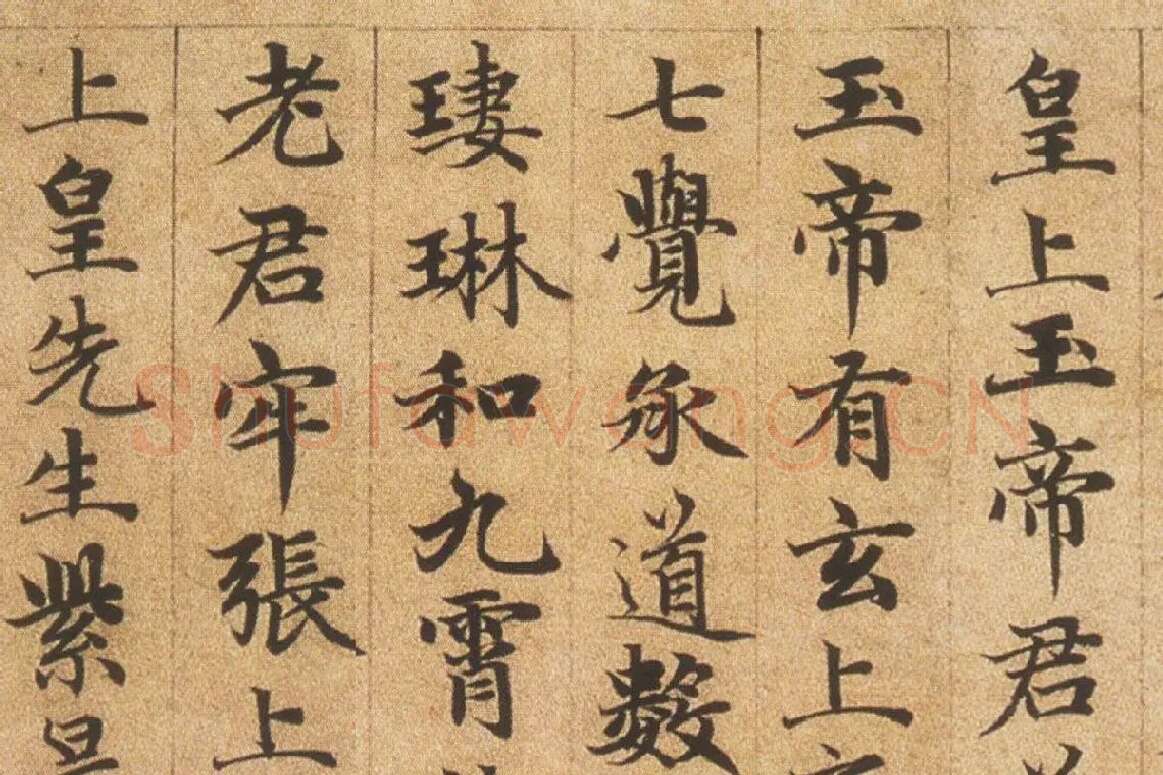 皇上玉帝君
玉帝有玄上
七覺承道數
㻎琳和九霄
老君牢張上
上皇先生紫
shufawang.CN